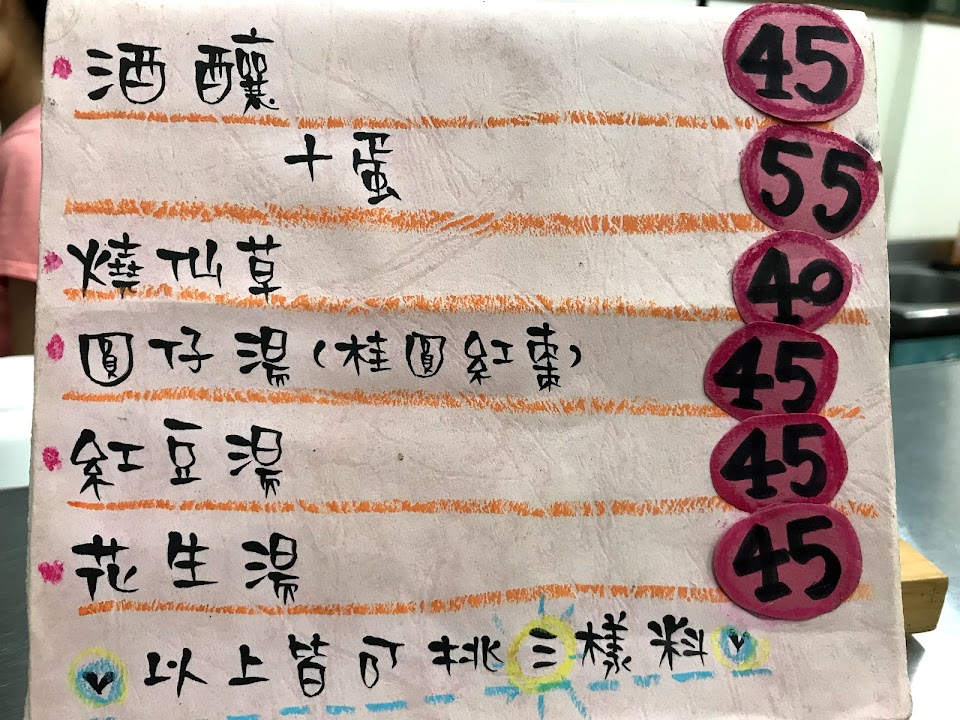 酒釀 45
十蛋 55
燒仙草 40
圓仔湯(桂圓紅棗) 45
紅豆湯 45
花生湯 45
以上皆可挑三樣料